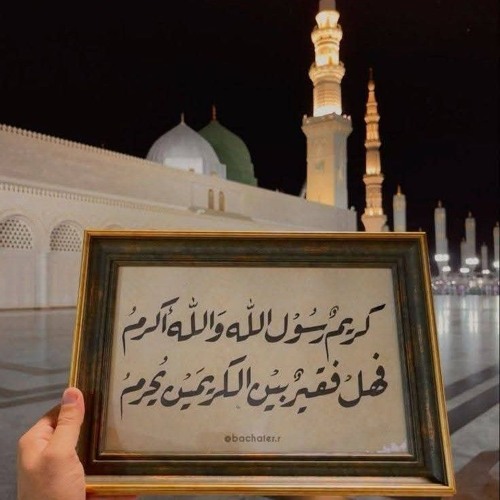 كريمٌ رسُوْل الله وَالله أكرمُ
فهلْ فقيرٌ بيْن الكريمَيْن يُحرمُ
@bachater.r